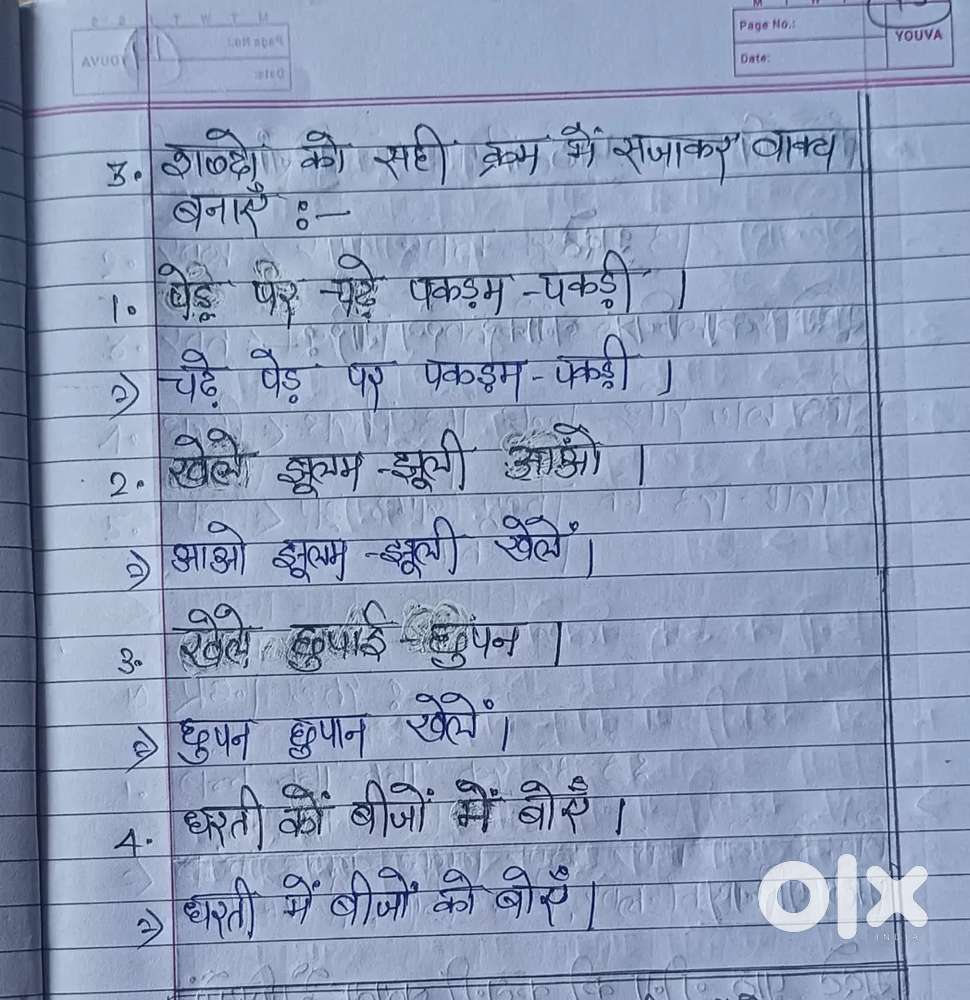 Page No.:
Date:
YOUVA
3. शब्दों को सही क्रम में सजाकर वाक्य
बनाएँ :-
1. पेड़ पर चढ़े पकड़म-पकड़ी ।
=) चढ़े पेड़ पर पकड़म-पकड़ी ।
2. खेले झूलम-झूली आओ ।
=) आओ झूलम-झूली खेलें ।
3. खेले छुपाई-छुपन ।
=) छुपन छुपान खेलें ।
4. धरती को बीजों में बोएँ ।
=) धरती में बीजों को बोएँ ।
olx
INDIA